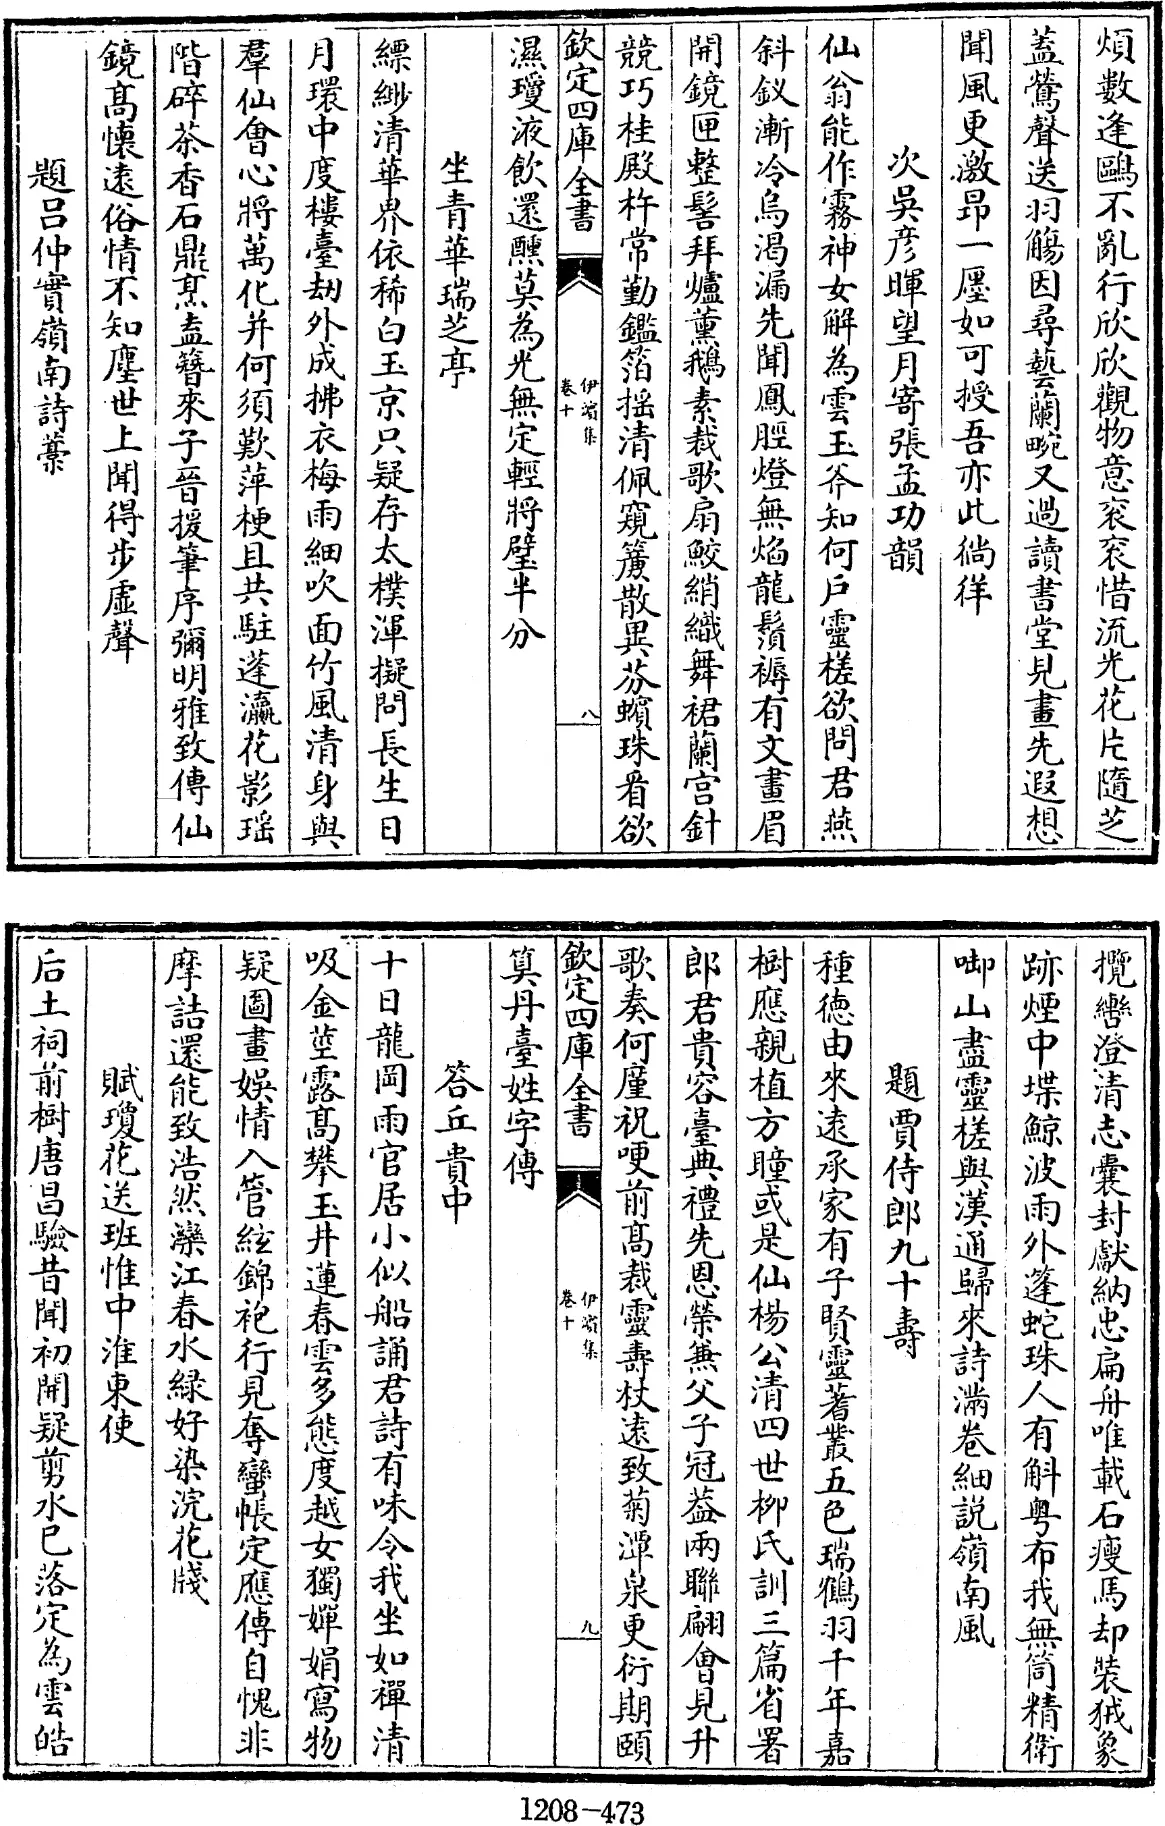 煩數逢鷗不亂行欣欣觀物意衮衮惜流光花片隨芝
蓋鶯聲送羽觴因尋藝蘭畹又過讀書堂見畫先遐想
聞風更激昂一廛如可授吾亦此徜徉
次吳彦暉望月寄張孟功韻
仙翁能作霧神女解為雲玉斧知何戶靈槎欲問君燕
斜釵漸冷烏渴漏先聞鳳脛燈無焰龍鬚褥有文畫眉
開鏡匣整髻拜爐薫鵝素裁歌扇鮫綃織舞裙蘭宫針
競巧桂殿杵常勤鑑箔揺清佩窺簾散異芬蠙珠看欲
欽定四庫全書
伊濱集
卷十
八
濕瓊液飲還醺莫為光無定輕將璧半分
坐青華瑞芝亭
縹緲清華界依稀白玉京只疑存太樸渾擬問長生日
月環中度樓臺劫外成拂衣梅雨細吹面竹風清身與
羣仙會心將萬化并何須歎萍梗且共駐蓬瀛花影瑶
階碎茶香石鼎烹盍簮來子晉援筆序彌明雅致傳仙
鏡髙懐遠俗情不知塵世上聞得步虛聲
題吕仲實嶺南詩藁
攬轡澄清志囊封獻納忠扁舟唯載石瘦馬却裝狨象
跡煙中堞鯨波雨外篷蛇珠人有斛粤布我無筒精衛
啣山盡靈槎與漢通歸來詩滿卷細説嶺南風
題賈侍郎九十壽
種德由來遠承家有子賢靈蓍叢五色瑞鶴羽千年嘉
樹應親植方瞳或是仙楊公清四世柳氏訓三篇省署
郎君貴容臺典禮先恩榮兼父子冠葢兩聯翩會見升
歌奏何廑祝哽前髙裁靈壽杖遠致菊潭泉更衍期頤
欽定四庫全書
伊濱集
卷十
九
筭丹臺姓字傳
答丘貴中
十日龍岡雨官居小似船誦君詩有味令我坐如禪清
吸金莖露髙攀玉井蓮春雲多態度越女獨嬋娟寫物
疑圖畫娱情入管絃錦袍行見奪蠻帳定應傳自愧非
摩詰還能致浩然灤江春水緑好染浣花牋
賦瓊花送班惟中淮東使
后土祠前樹唐昌驗昔聞初開疑剪水已落定為雲皓
1208-473